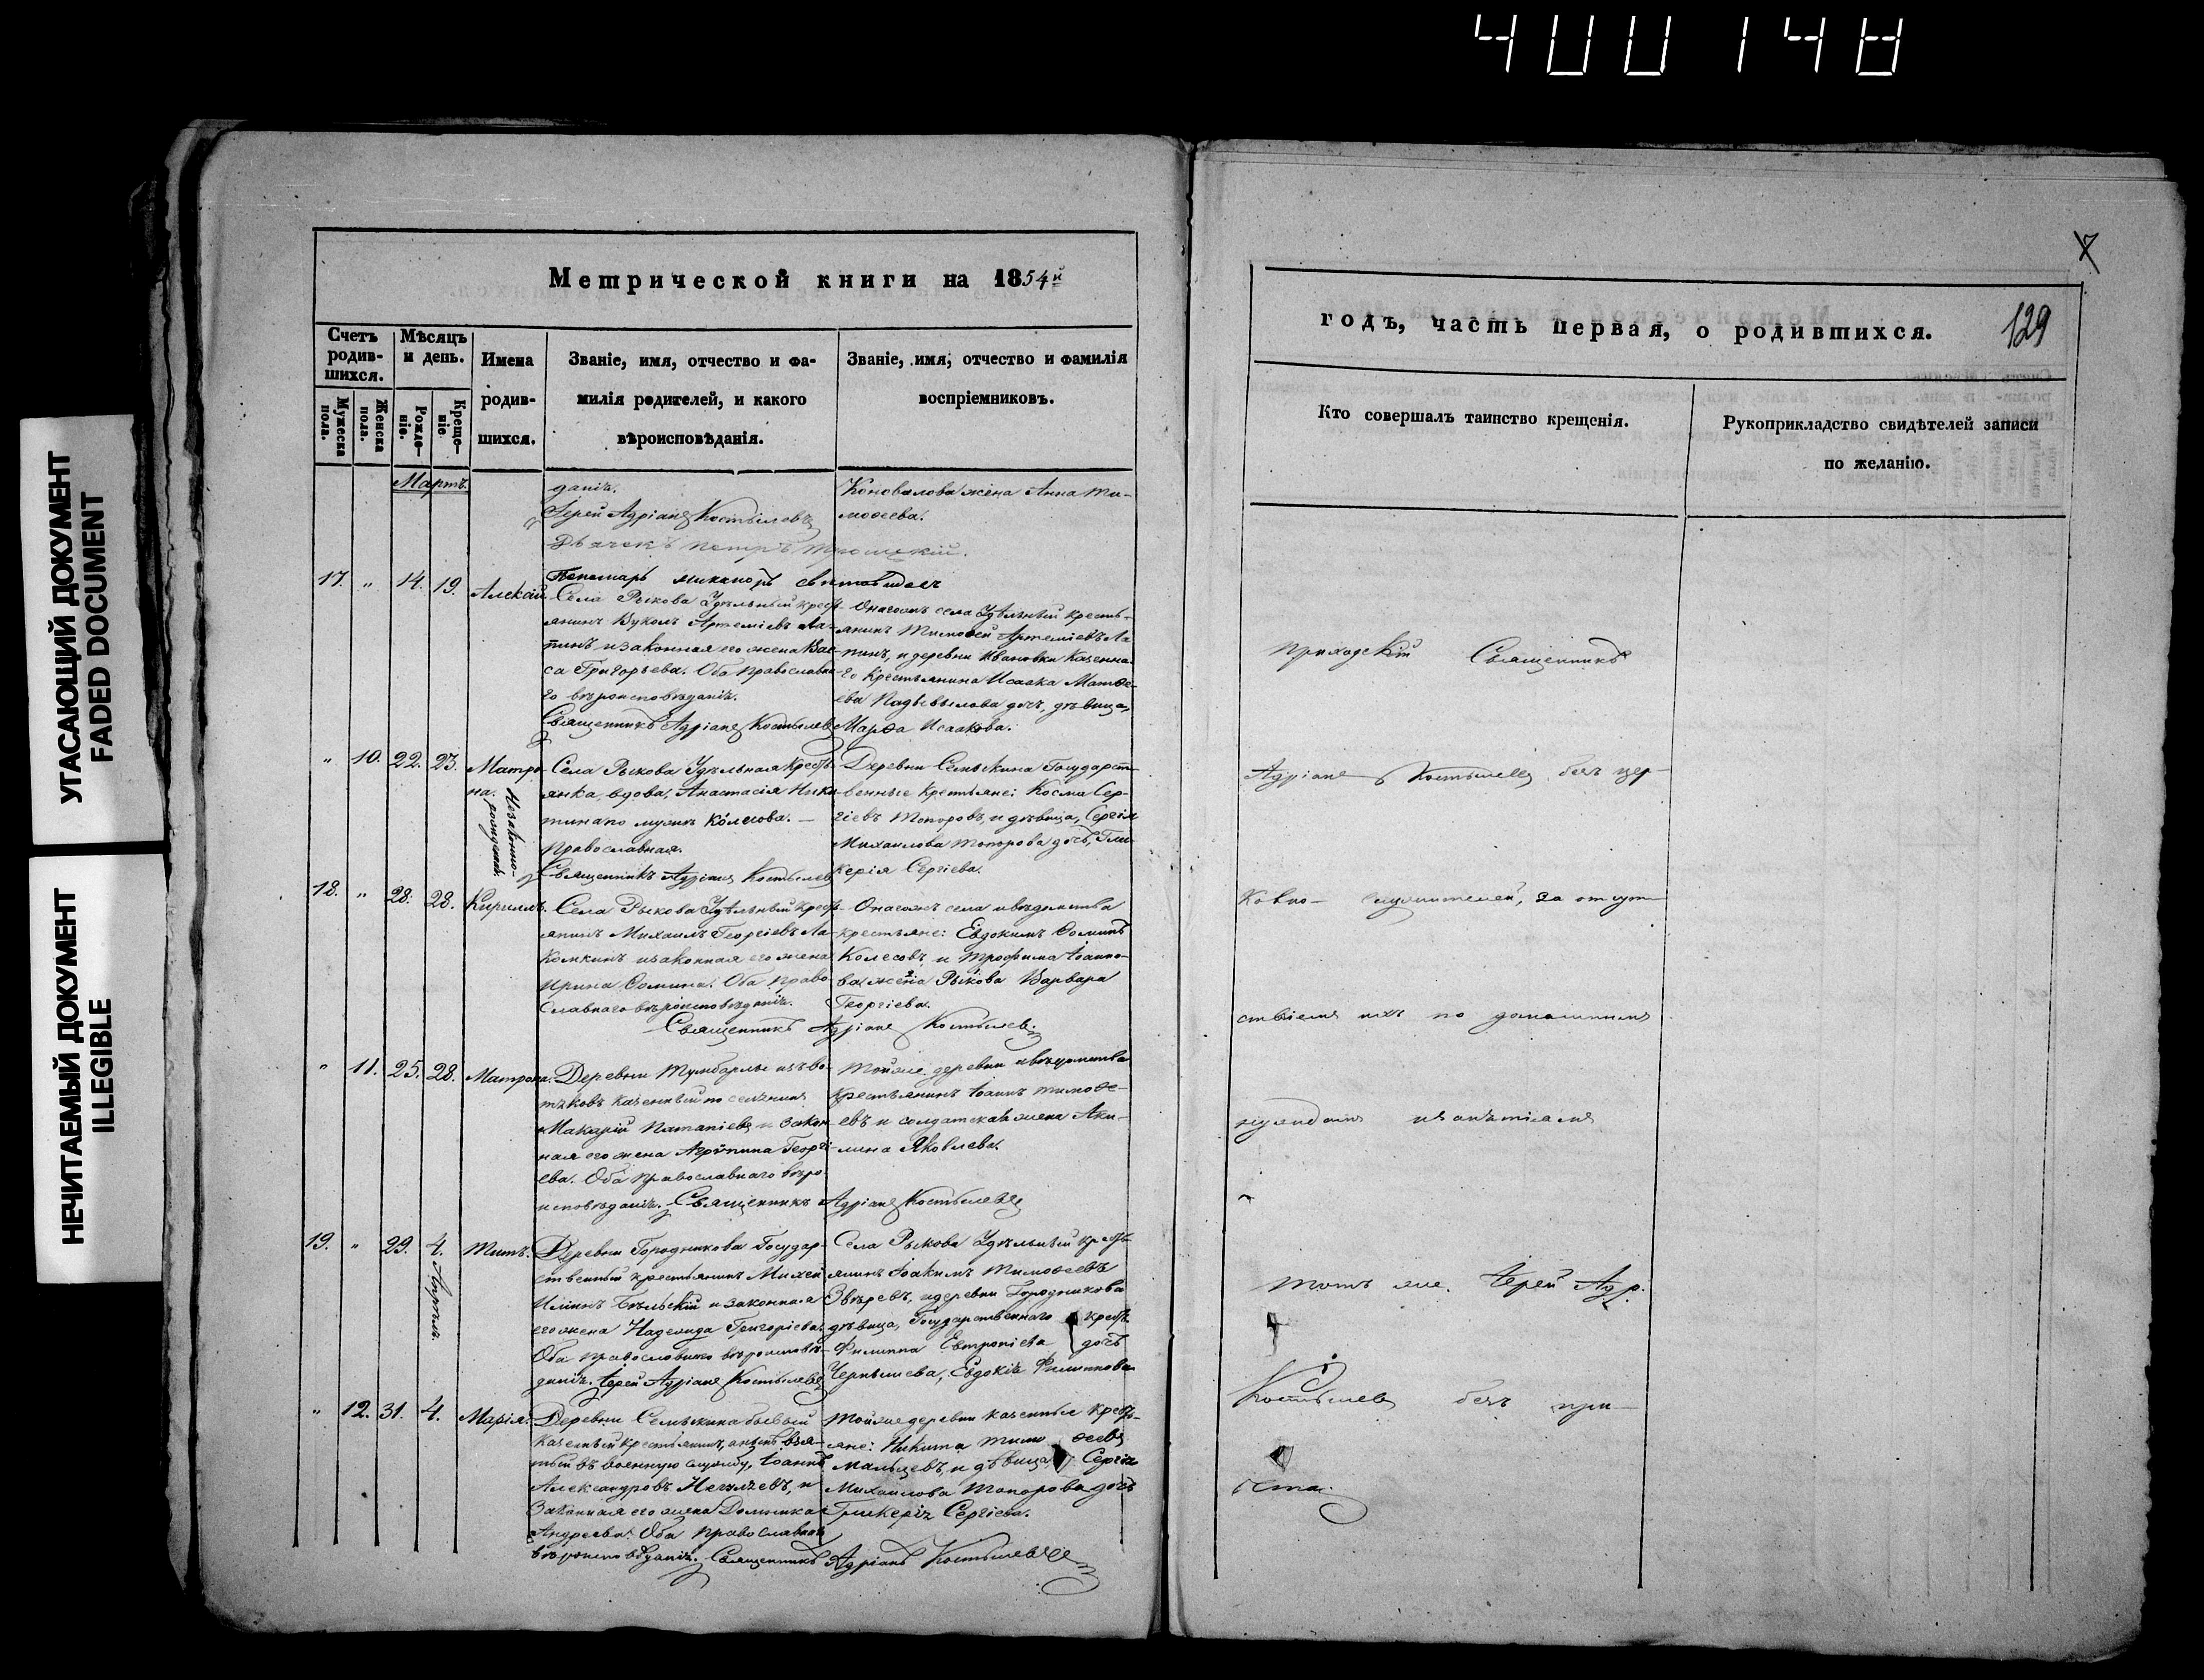 400148
УГАСАЮЩИЙ ДОКУМЕНТ
FADED DOCUMENT
НЕЧИТАЕМЫЙ ДОКУМЕНТ
ILLEGIBLE
Метрической книги на 1854й
Счетъ родив-шихся.
Мужеска пола.
Женска пола.
Мѣсяцъ и день.
Рожде-ніе.
Креще-ніе
Имена родив-шихся.
Званіе, имя, отчество и фа-
милія родителей, и какого
вѣроисповѣданія.
Званіе, имя, отчество и фамилія
воспріемниковъ.
Мартъ.
данія.
Іерей Адріанъ Костылевъ
Дьячекъ Петръ
Пономарь
Коновалова жена Анна Ти-
моѳеева.
17. „ 14. 19. Алексій.
Села Рыкова Удѣльный крест-
янинъ Вуколъ Артеміевъ Ла-
пинъ, и законная его жена Вас-
са Григорьева. Оба православна-
го вѣроисповѣданія.
Священникъ Адріанъ Костылевъ
Онагожъ села Удѣльный кресть-
янинъ Тимоѳей Артеміевъ Ла-
пинъ, и деревни Ивановки Казенна-
го крестьянина Исаака Матѳе-
ева дочь, дѣвица,
Марѳа Исаакова.
„ 10. 22. 23. Матро-
на. Незаконно-
рожденная.
Села Рыкова Удѣльная крест-
янка, вдова, Анастасія Ники-
тина по мужѣ Колесова. —
Православная.
Священникъ Адріанъ Костылевъ
Деревни Семыкина Государст-
венные крестьяне: Косма Сер-
гіевъ Топоровъ, и дѣвица, Сергія
Михаилова Топорова дочь, Гли-
керія Сергіева.
18. „ 28. 28. Кириллъ.
Села Рыкова Удѣльный крест-
янинъ Михаилъ Георгіевъ Ла-
комкинъ и законная его жена
Ирина Ѳомина. Оба право-
славнаго вѣроисповѣданія.
Священникъ Адріанъ Костылевъ
Онагожъ села и вѣдомства
крестьяне: Евдокимъ Ѳоминъ
Колесовъ, и Трофима Іоанно-
ва жена Рыкова Варвара
Георгіева.
„ 11. 25. 28. Матрона.
Деревни Тумбарлы изъ во-
тяковъ казенный поселянинъ
Макарій Патапіевъ и закон-
ная его жена Агрипина Георгі-
ева. Оба православнаго вѣро-
исповѣданія. Священникъ Адріанъ Костылевъ
Тойже деревни и вѣдомства
крестьянинъ Іоаннъ Тимоѳе-
евъ и солдатская жена Аки-
лина Яковлева.
19. „ 29. 4. Апрѣля. Титъ.
Деревни Городникова Государ-
ственный крестьянинъ Михей
Илiинъ Бѣльскій и законная
его жена Надежда Григоріева.
Оба православнаго вѣроисповѣ-
данія. Іерей Адріанъ Костылевъ
Села Рыкова Удѣльный крест-
янинъ Іоакимъ Тимоѳеевъ
Звѣревъ, и деревни Городникова
дѣвица, Государственного крест.
Филиппа Евтропіева дочь
Чернышева, Евдокія Филиппова
„ 12. 31. 4. Марія.
Деревни Семыкина бывый
казенный крестьянинъ, а нынѣ взя-
тый въ военную службу, Іоаннъ
Александровъ и
законная его жена Домника
Андреева. Оба православнаго
вѣроисповѣданія. Священникъ Адріанъ Костылевъ
Тойже деревни казенные крестъ-
яне: Никита Тимоѳеевъ
Мальцевъ, и дѣвица Сергія
Михаилова Топорова дочь
Гликерія Сергіева.
годъ, часть первая, о родившихся.
129
Кто совершалъ таинство крещенія.
Рукоприкладство свидѣтелей записи
по желанію.
Приходскій Священникъ
Адріанъ Костылевъ безъ цер-
ковно- служителей, за отсут-
ствіемъ ихъ по домашнимъ
нуждамъ
Тотъ же Іерей Адр.
Костылевъ безъ при-
чта.